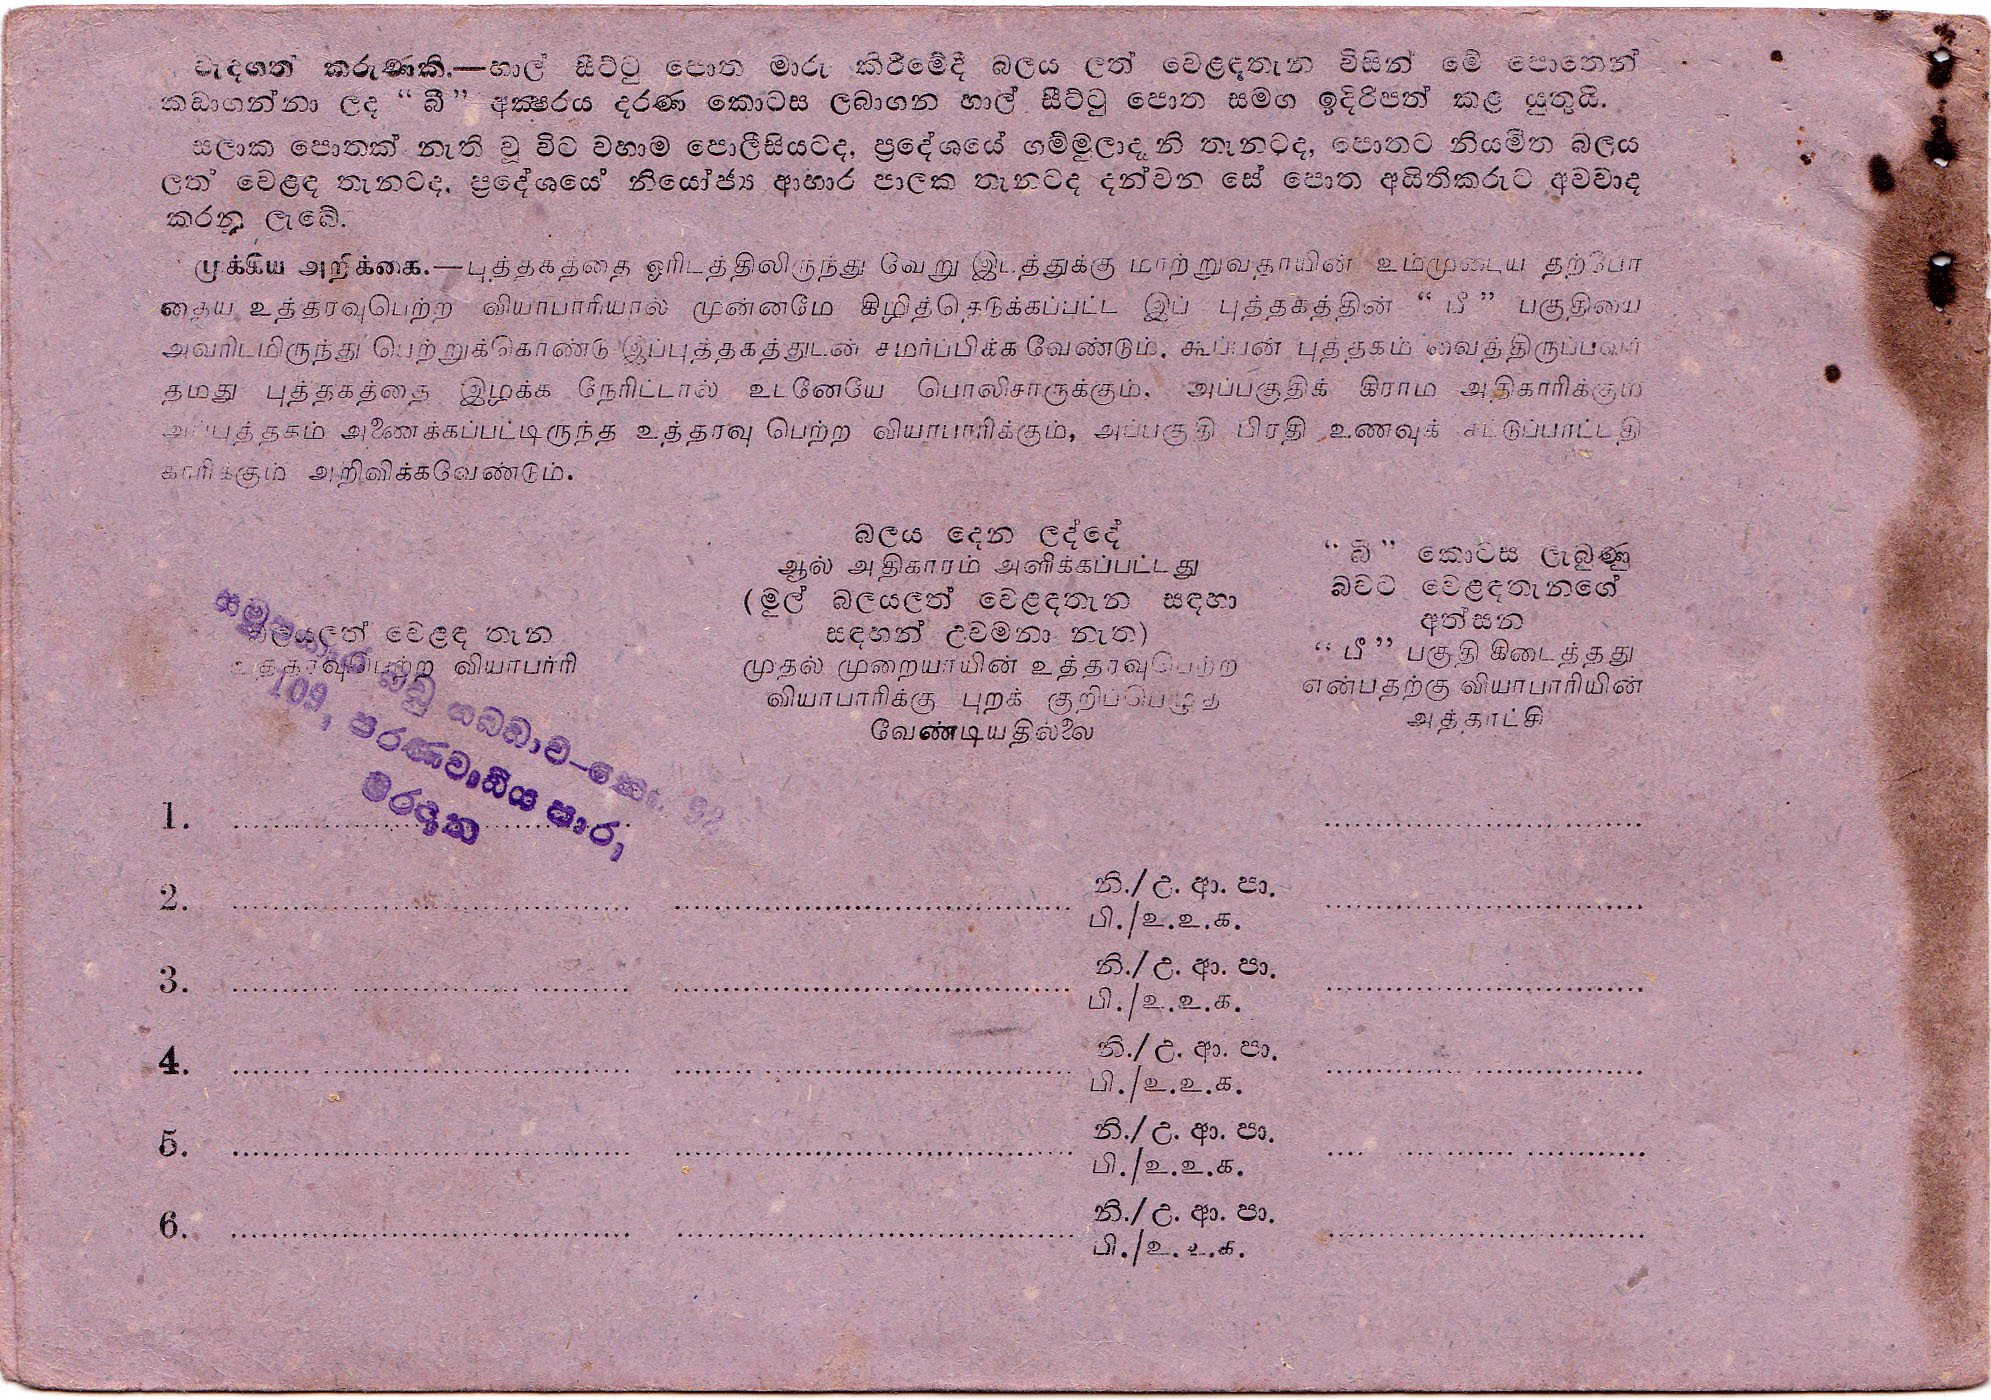 වැදගත් කරුණකි.—හාල් සීට්ටු පොත මාරු කිරීමේදී බලය ලත් වෙළඳතැන විසින් මේ පොතෙන්
කඩාගන්නා ලද “ බී ” අක්‍ෂරය දරණ කොටස ලබාගන හාල් සීට්ටු පොත සමග ඉදිරිපත් කළ යුතුයි.
සලාක පොතක් නැති වූ විට වහාම පොලීසියටද, ප්‍රදේශයේ ගම්මුලාදෑනි තැනටද, පොතට නියමිත බලය
ලත් වෙළඳ තැනටද, ප්‍රදේශයේ නියෝජ්‍ය ආහාර පාලක තැනටද දන්වන සේ පොත අයිතිකරුට අවවාද
කරනු ලැබේ.
முக்கிய அறிக்கை.—புத்தகத்தை ஓரிடத்திலிருந்து வேறு இடத்துக்கு மாற்றுவதாயின் உம்முடைய தற்போ
தைய உத்தரவுபெற்ற வியாபாரியால் முன்னமே கிழித்தெடுக்கப்பட்ட இப் புத்தகத்தின் “ பீ ” பகுதியை
அவரிடமிருந்து பெற்றுக்கொண்டு இப்புத்தகத்துடன் சமர்ப்பிக்க வேண்டும். கூப்பன் புத்தகம் வைத்திருப்பவர்
தமது புத்தகத்தை இழக்க நேரிட்டால் உடனேயே பொலிசாருக்கும், அப்பகுதிக் கிராம அதிகாரிக்கும்
அப்புத்தகம் அணைக்கப்பட்டிருந்த உத்தரவு பெற்ற வியாபாரிக்கும், அப்பகுதி பிரதி உணவுக் கட்டுப்பாட்டதி
காரிக்கும் அறிவிக்கவேண்டும்.
බලයලත් වෙළඳ තැන
உத்தரவுபெற்ற வியாபாரி
සමුපකාර බඩු සබඬාව–කො. 92
109, පරණවාඩිය පාර,
මරදාන
බලය දෙන ලද්දේ
ஆல் அதிகாரம் அளிக்கப்பட்டது
(මුල් බලයලත් වෙළඳතැන සඳහා
සඳහන් උවමනා නැත)
முதல் முறையாயின் உத்தரவுபெற்ற
வியாபாரிக்கு புறக் குறிப்பெழுத
வேண்டியதில்லை
“ බී ” කොටස ලැබුණු
බවට වෙළඳතැනගේ
අත්සන
“ பீ ” பகுதி கிடைத்தது
என்பதற்கு வியாபாரியின்
அத்தாட்சி
1.
2. නි./උ. ආ. පා.
பி./உ.உ.க.
3. නි./උ. ආ. පා.
பி./உ.உ.க.
4. නි./උ. ආ. පා.
பி./உ.உ.க.
5. නි./උ. ආ. පා.
பி./உ.உ.க.
6. නි./උ. ආ. පා.
பி./உ.உ.க.